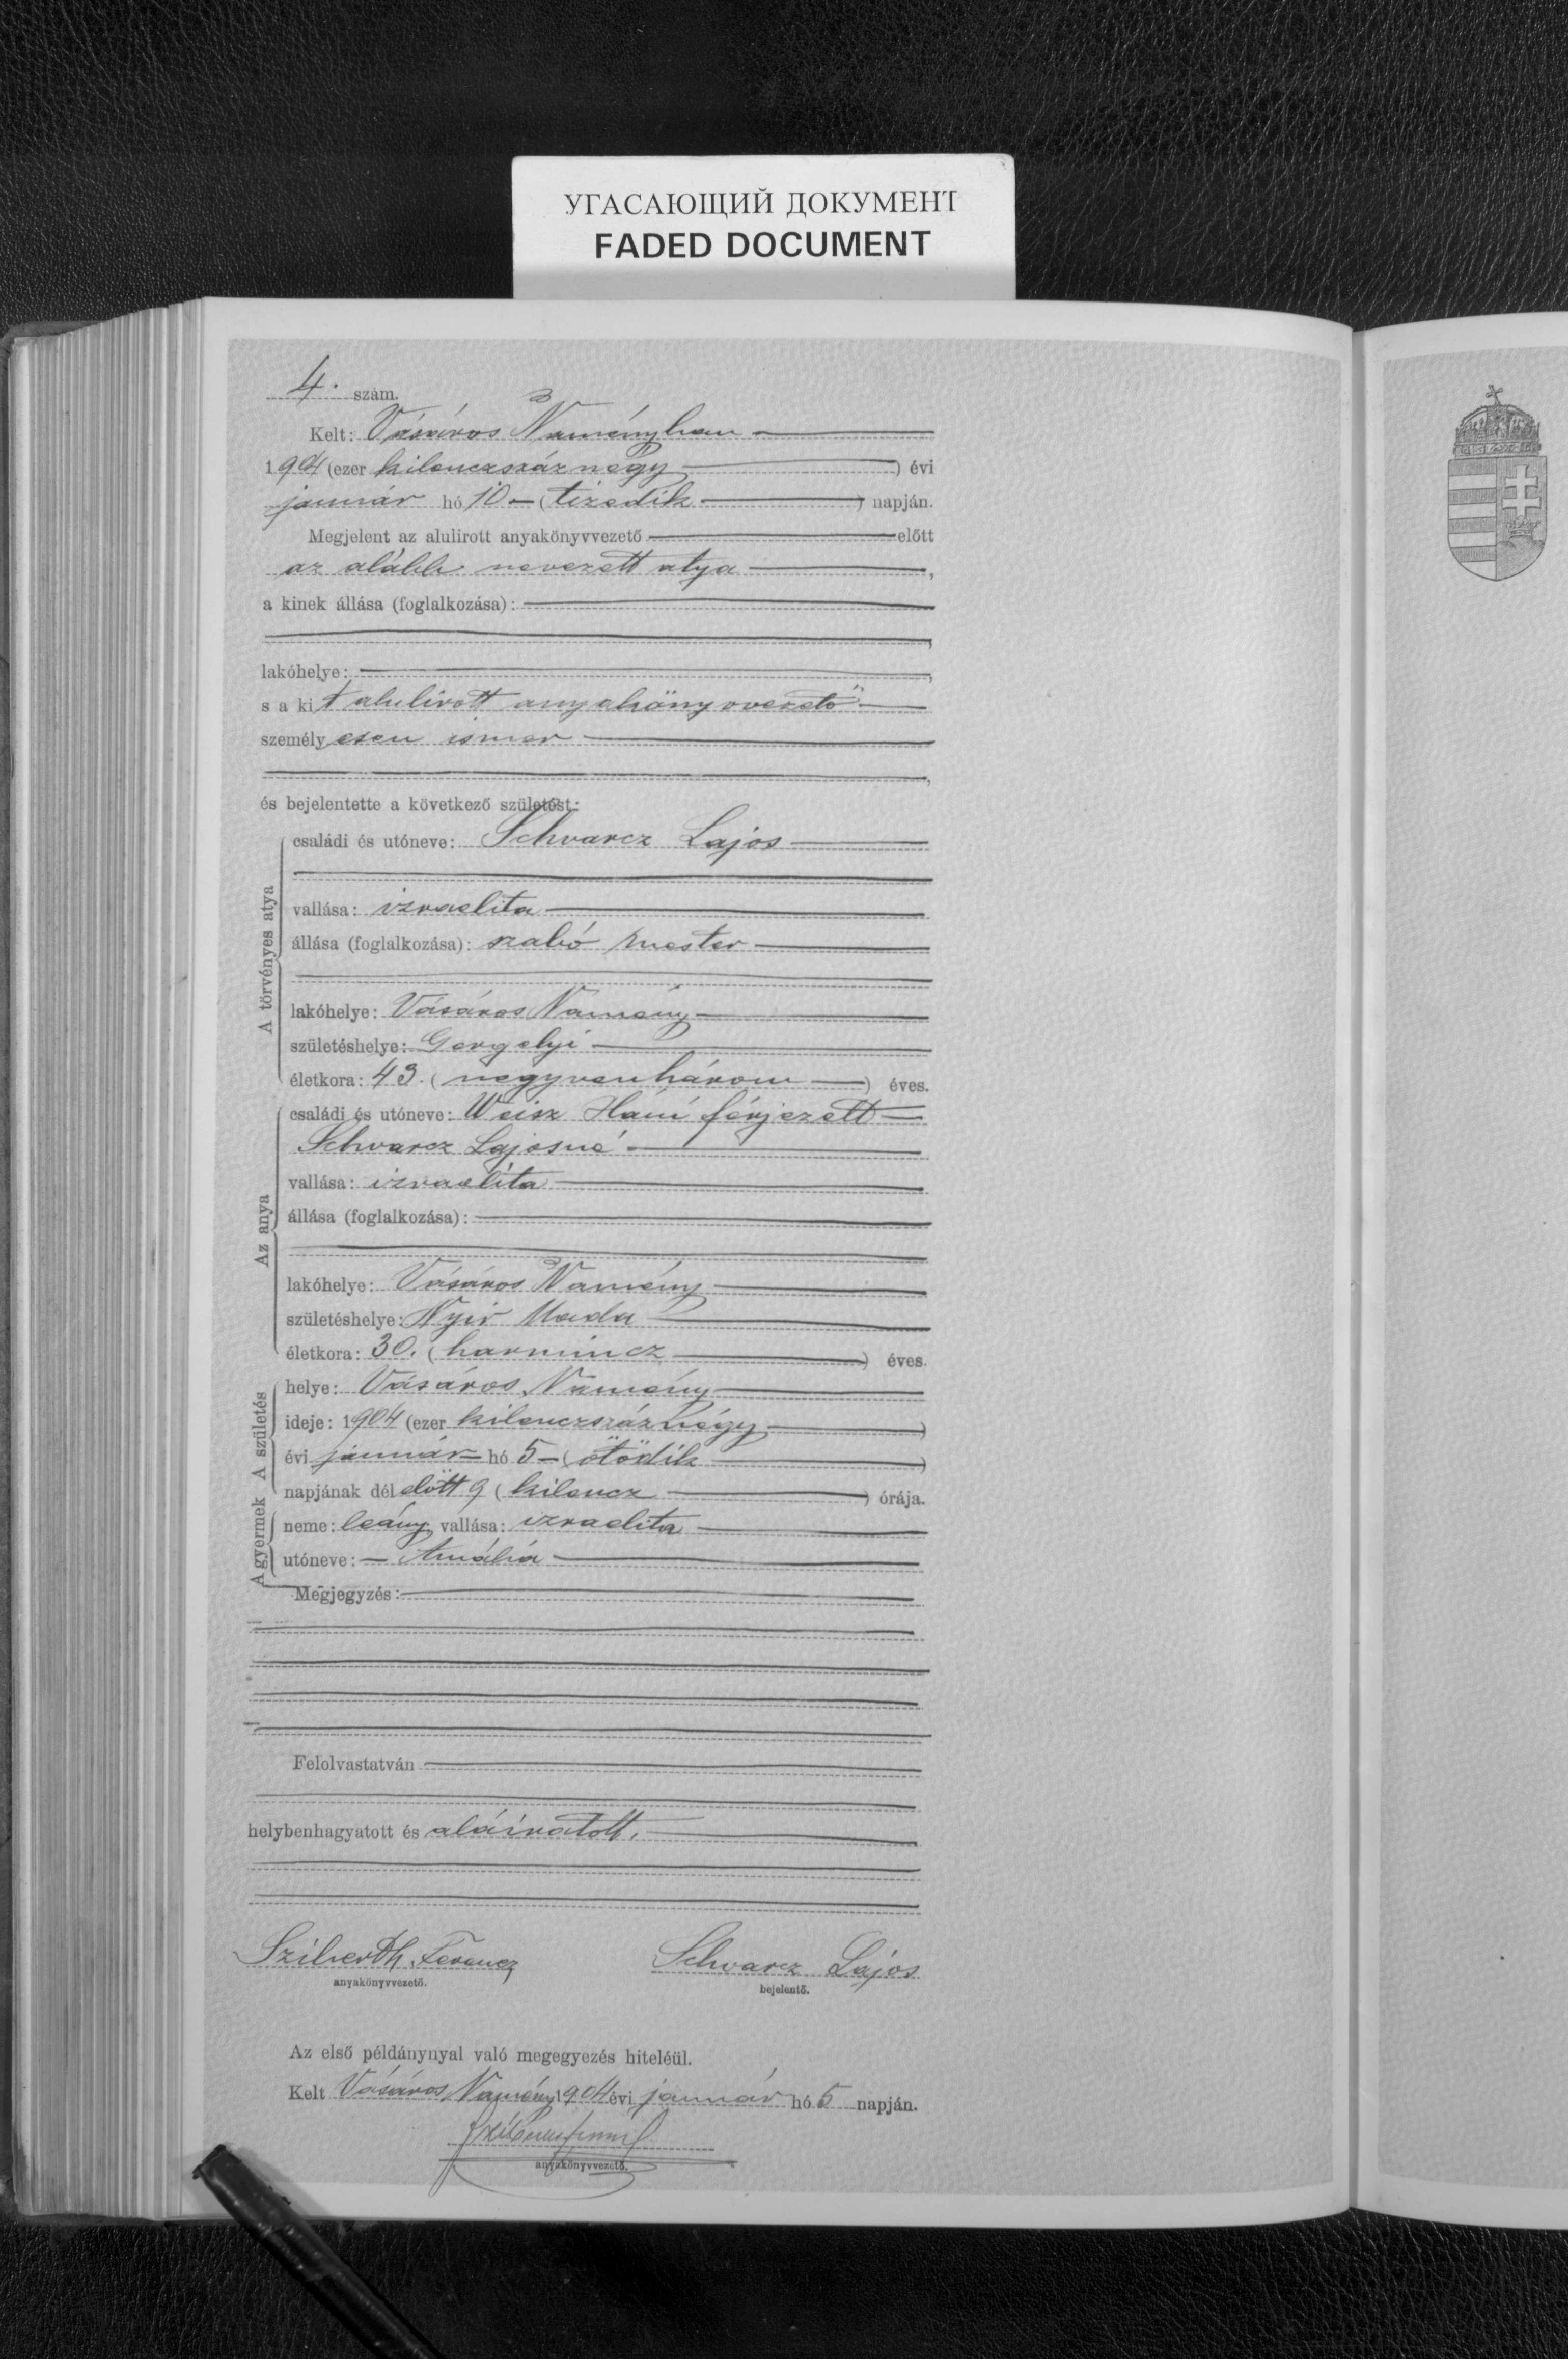 УГАСАЮЩИЙ ДОКУМЕНТ
FADED DOCUMENT
4. szám.
Kelt: Vásáros Naményban
1904 (ezer kilenczszáznégy) évi
január hó 10 (tizedik) napján.
Megjelent az alulirott anyakönyvvezető előtt
az alább nevezett atya,
a kinek állása (foglalkozása):
lakóhelye:
s a kit alulírott anyakönyvvezető
személyesen ismer
és bejelentette a következő születést:
A törvényes atya
családi és utóneve: Schvarcz Lajos
vallása: izraelita
állása (foglalkozása): szabó mester
lakóhelye: Vásáros Namény
születéshelye: Gergelyi
életkora: 43. (negyvenhárom) éves.
Az anya
családi és utóneve: Weisz Háni férjezett
Schvarcz Lajosné
vallása: izraelita
állása (foglalkozása):
lakóhelye: Vásáros Namény
születéshelye: Nyir Mada
életkora: 30. (harmincz) éves.
A születés
helye: Vásáros Namény
ideje: 1904 (ezer kilenczszáznégy)
évi január hó 5 (ötödik)
napjának délelőtt 9 (kilencz) órája.
A gyermek
neme: leány vallása: izraelita
utóneve: Amália
Megjegyzés:
Felolvastatván
helybenhagyatott és aláiratott.
Ferencz Schvarcz Lajos
anyakönyvvezető. bejelentő.
Az első példánynyal való megegyezés hiteléül.
Kelt Vásáros Namény 1904 évi január hó 5 napján.
anyakönyvvezető.